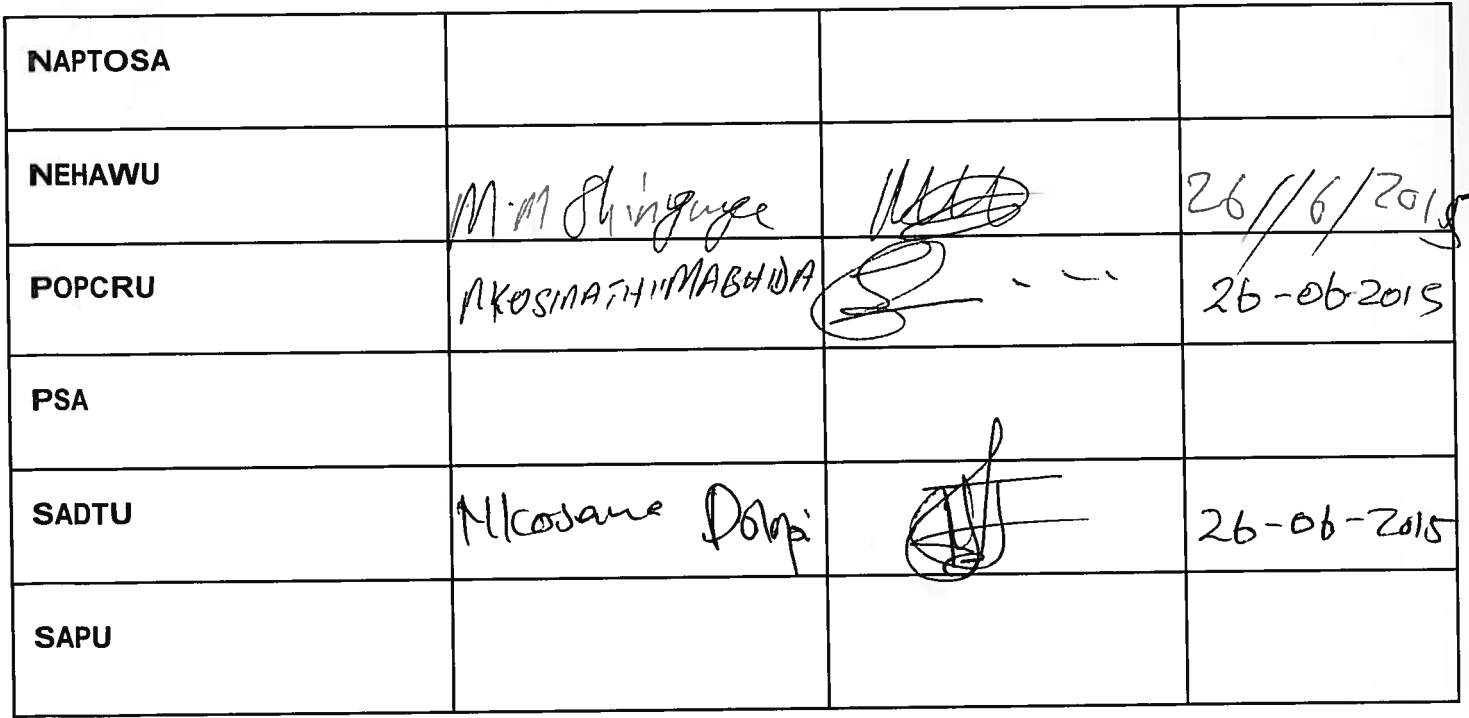 NAPTOSA
NEHAWU M.M Shingwenge 26//6/2015
POPCRU NKOSINATHI MABHIDA 26-06-2015
PSA
SADTU Nkosana Dolopi 26-06-2015
SAPU